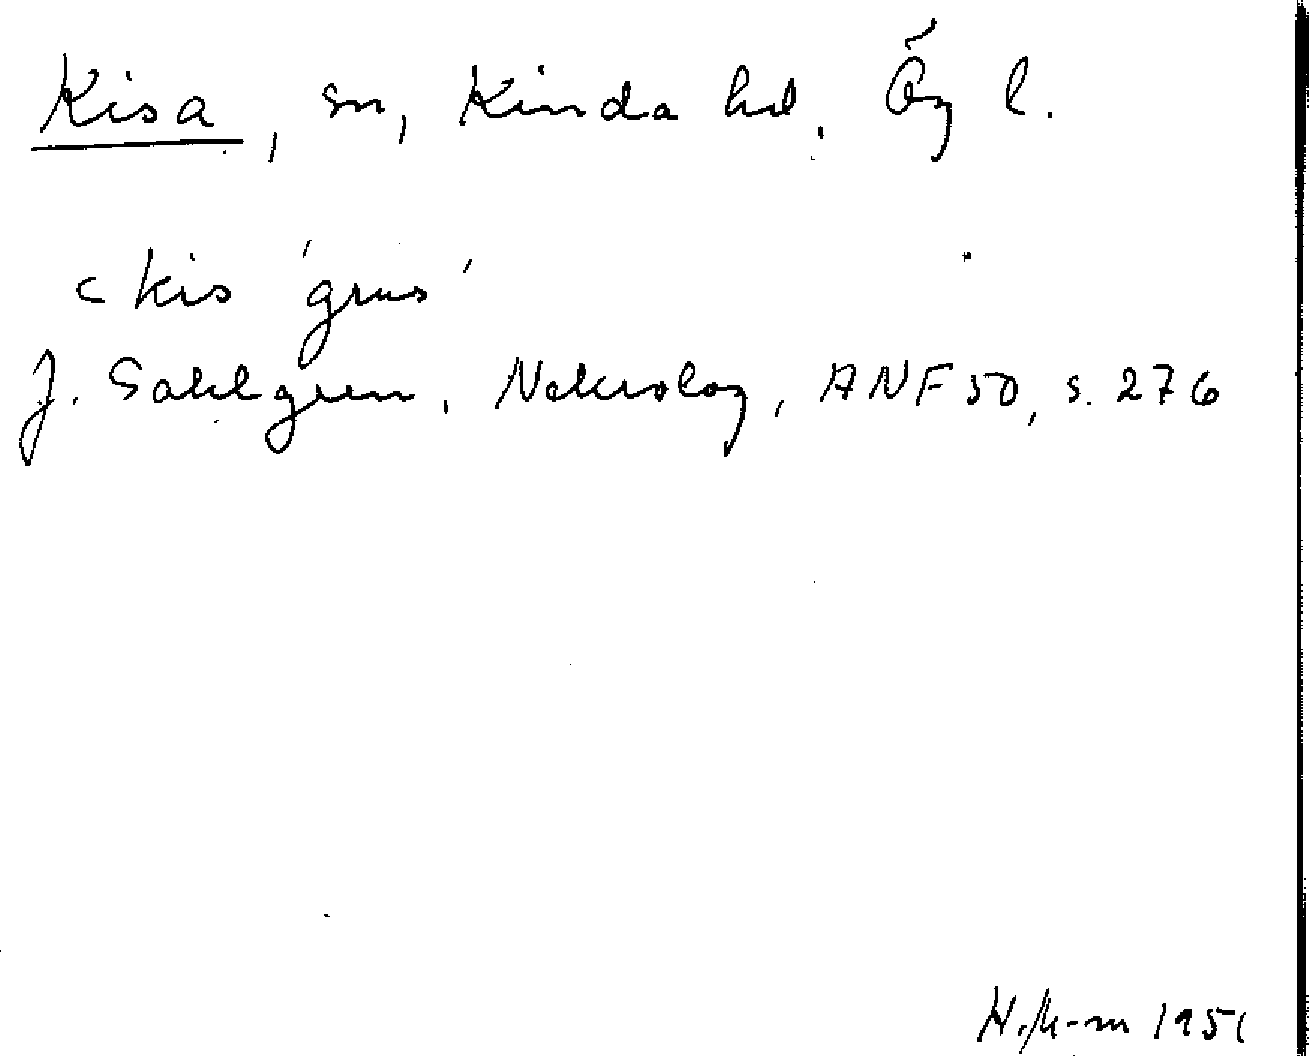 Kisa, sn, Kinda hd. Ög l.
< kis 'grus'
J. Sahlgren, Nekrolog, ANF 50, s. 276
1951